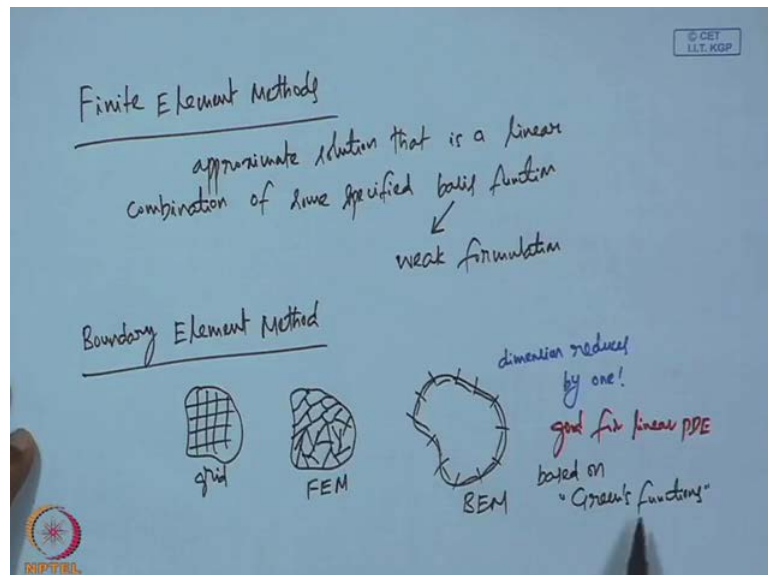 © CET
I.I.T. KGP
Finite Element Methods
approximate solution that is a linear
combination of some specified basis function
weak formulation
Boundary Element Method
grid
FEM
BEM
dimension reduces
by one!
good for linear PDE
based on
"Green's functions"
NPTEL